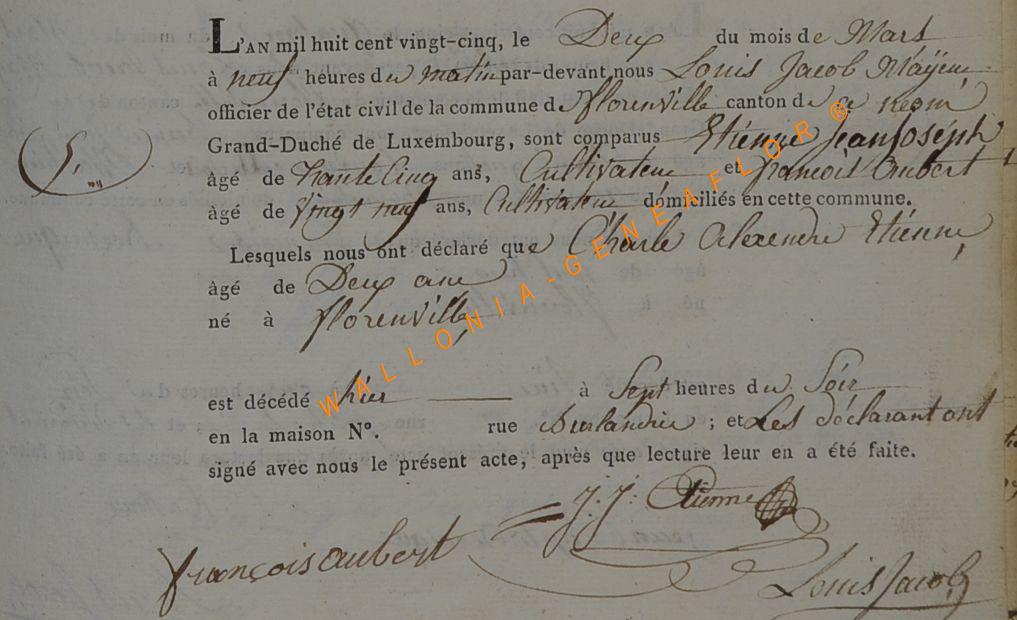 L'AN mil huit cent vingt-cinq, le Deux du mois de Mars
à neuf heures du matin par-devant nous Louis Jacob Mayeur
officier de l'état civil de la commune de florenville canton de
Grand-Duché de Luxembourg, sont comparus Etienne Jean Joséph
5.
âgé de trante Cinq ans, Cultivateur et françois Aubert
âgé de vingt neuf ans, Cultivateur domiciliés en cette commune.
Lesquels nous ont déclaré que Charle Alexendre Etienne,
âgé de Deux ans
né à florenville,
est décédé hier à Sept heures du Soir
en la maison N°. rue ; et Les déclarant ont
signé avec nous le présent acte, après que lecture leur en a été faite.
J. J. Etienne
françois aubert
Louis Jacob
WALLONIA-GENEAFLOR®